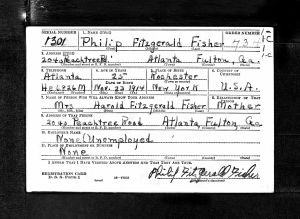 SERIAL NUMBER 1. NAME (Print) ORDER NUMBER
1301 Philip Fitzgerald Fisher
2. ADDRESS (Print)
2040 Peachtree Rd. Atlanta Fulton, Ga.
3. TELEPHONE 4. AGE IN YEARS 5. PLACE OF BIRTH 6. COUNTRY OF CITIZENSHIP
Atlanta 25 Rochester
DATE OF BIRTH
Nov. 23 1914 New York U.S.A.
7. NAME OF PERSON WHO WILL ALWAYS KNOW YOUR ADDRESS 8. RELATIONSHIP OF THAT PERSON
Mrs Harold Fitzgerald Fisher Mother
9. ADDRESS OF THAT PERSON
2040 Peachtree Road Atlanta Fulton Ga.
10. EMPLOYER'S NAME
None (Unemployed)
11. PLACE OF EMPLOYMENT OR BUSINESS
None
I AFFIRM THAT I HAVE VERIFIED ABOVE ANSWERS AND THAT THEY ARE TRUE.
REGISTRATION CARD
D. S. S. Form 1
Philip Fitzgerald Fisher